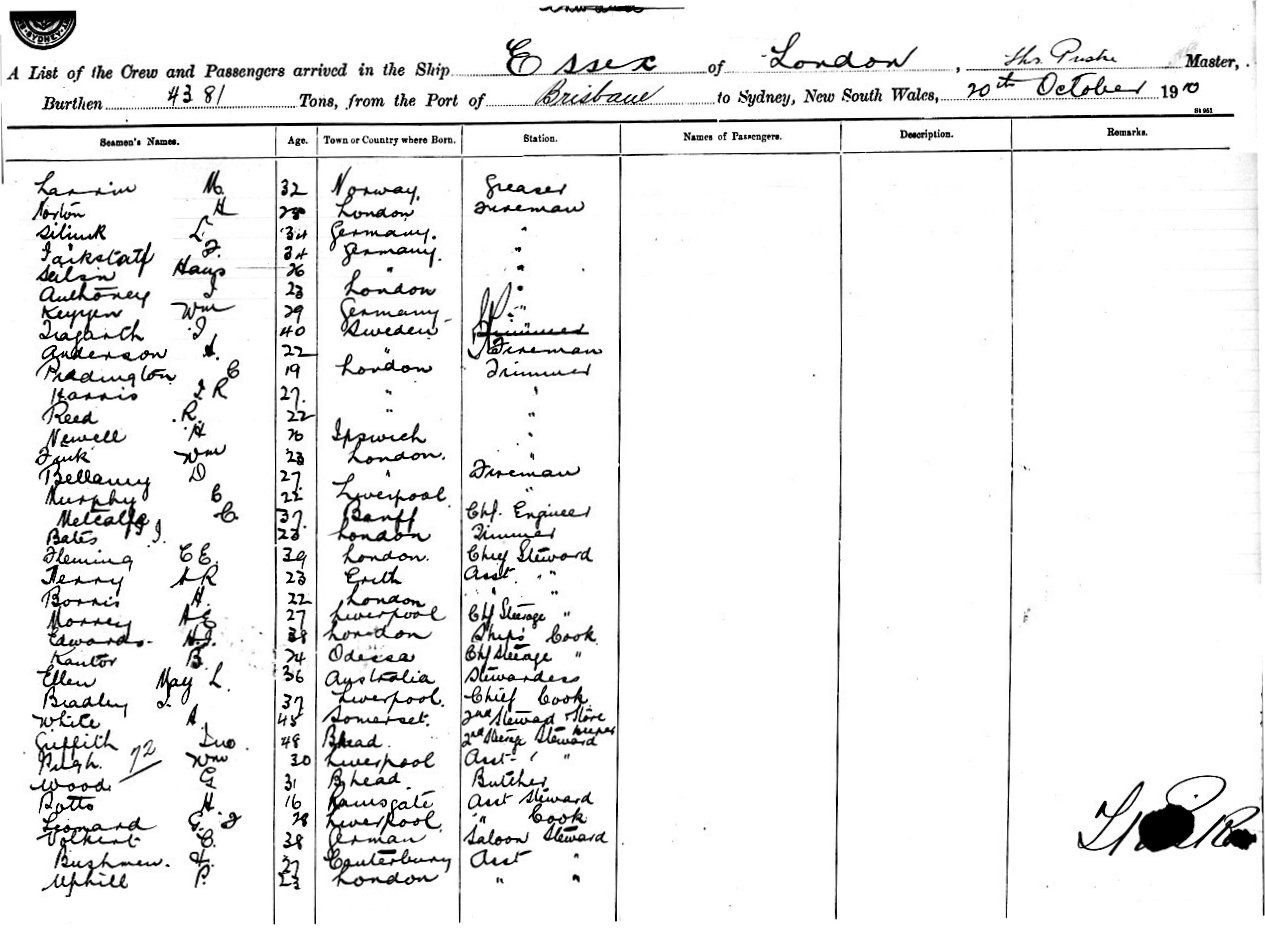 SYDNEY
A List of the Crew and Passengers arrived in the Ship Essex of London, Ths. Master,
Burthen 4381 Tons, from the Port of Brisbane to Sydney, New South Wales, 20th October 1910
St 951
Seamen's Names. Age. Town or Country where Born. Station. Names of Passengers. Description. Remarks.
M. 32 Norway. Greaser
Norton H 28 London Fireman
L 34 Germany. "
F. 34 Germany. "
Hans 26 " "
Anthoney J 23 London "
Keyyen Wm 29 Germany "
J 40 Sweden Trimmer
Anderson A. 22 " Fireman
Piddington C 19 London Trimmer
Harris J R 27. " "
Reed R. 22 " "
Newell H 26 Ipswich "
Wm 23 London. "
Bellamy D 27 " Fireman
Murphy C 22 Liverpool "
Metcalfe C. 37 Banff Chf. Engineer
Bates J. 23 London Trimmer
Fleming C E. 39 London. Chief Steward
Henry A R 23 Erith Asst. "
Borris H. 22 London " "
Morrey A E 27 Liverpool Chf Steerage "
Edwards H J. 38 London Ships' Cook
Kantor B. 24 Odessa Chf Steerage "
Ellen May L. 36 Australia Stewardess
Bradley J. 37 Liverpool. Chief Cook
White A 48 Somerset. 2nd Steward & Store keeper
Griffith Jno. 48 B'head. 2nd Steerage Steward
Pugh. 72 Wm 30 Liverpool Asst " "
Wood G 31 B'head. Butcher
Botts H. 16 Ramsgate Asst Steward
Leonard G. J 28 Liverpool. " Cook
Volkert C. 38 German Saloon Steward
Bushmen. H. 27 Canterbury Asst "
Uphill P. 23 London " "